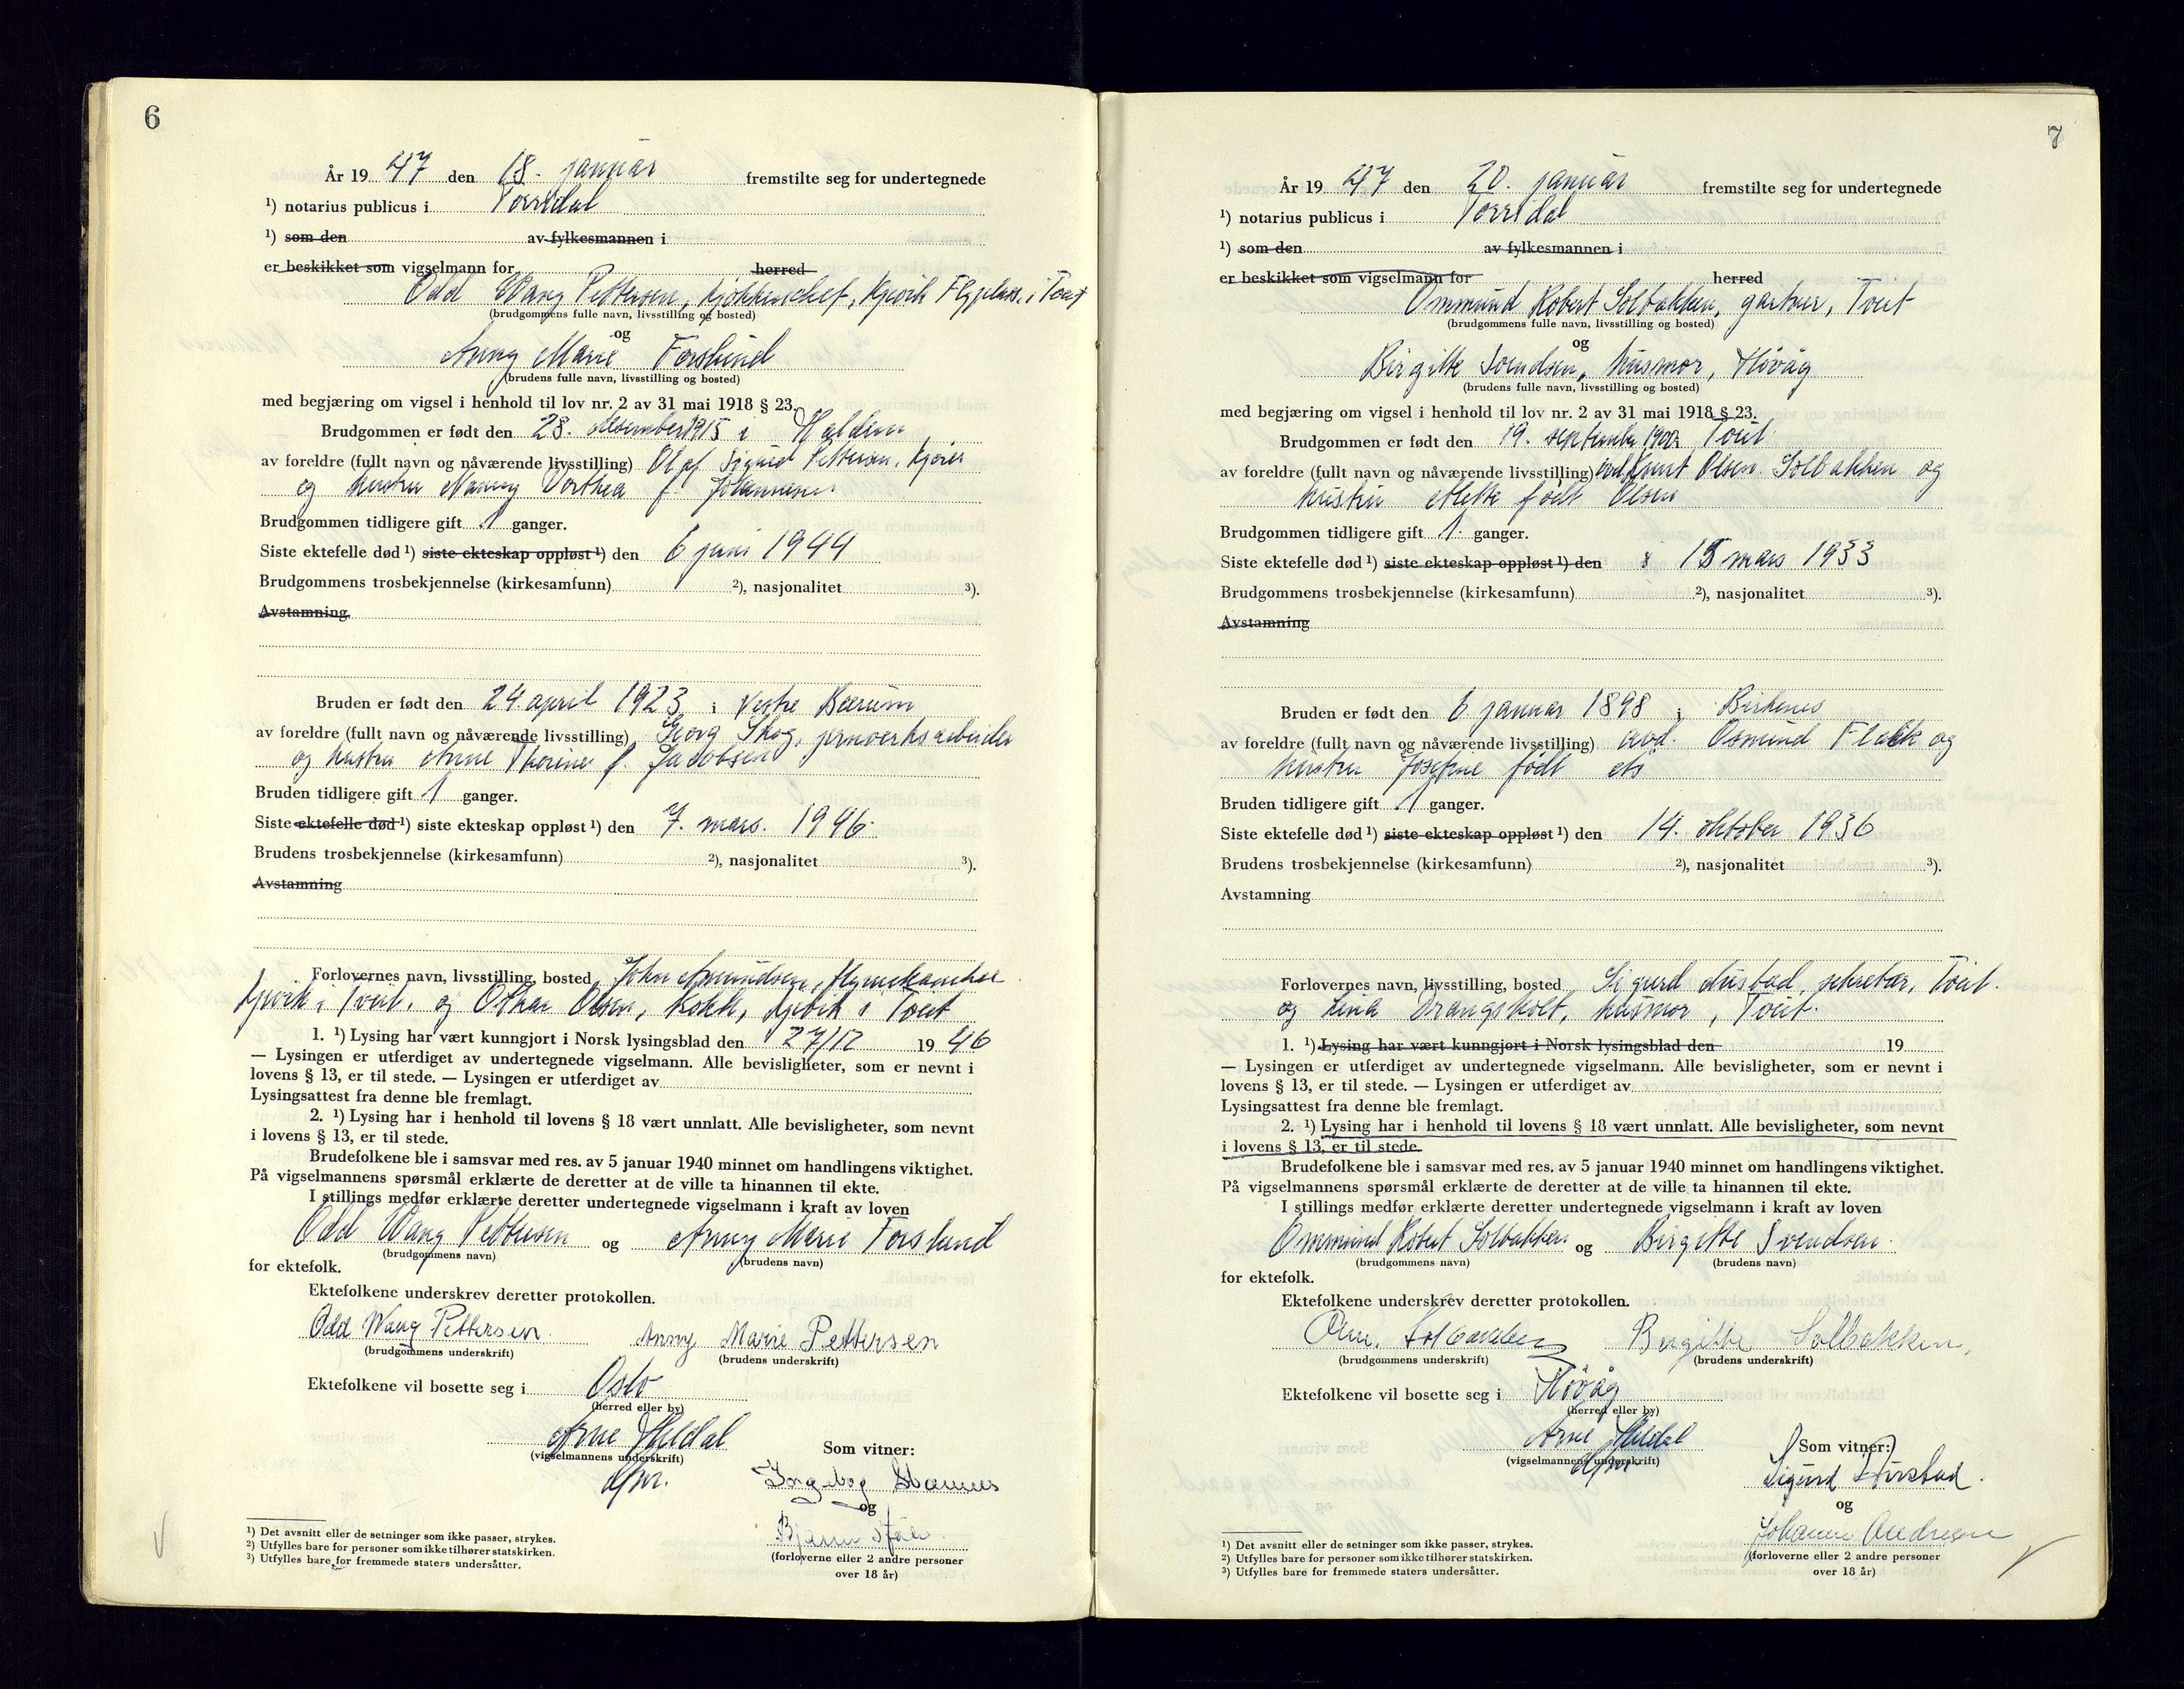 6
År 19 47 den 18. januar fremstilte seg for undertegnede
¹) notarius publicus i Torridal
¹) som den av fylkesmannen i
er beskikket som vigselmann for herred
Odd Wang Pettersen, kjøkkenchef, Kjevik Flyplass, i Tveit
(brudgommens fulle navn, livsstilling og bosted)
og
Anny Marie Forslund
(brudens fulle navn, livsstilling og bosted)
med begjæring om vigsel i henhold til lov nr. 2 av 31 mai 1918 § 23.
Brudgommen er født den 28. desember 1915 i Halden
av foreldre (fullt navn og nåværende livsstilling) Olaf Sigurd Pettersen, kjører
og hustru Nanny Dorthea f. Johannesen
Brudgommen tidligere gift 1 ganger.
Siste ektefelle død ¹) siste ekteskap oppløst ¹) den 6 juni 1944
Brudgommens trosbekjennelse (kirkesamfunn) ²), nasjonalitet ³).
Avstamning
Bruden er født den 24. april 1923 i Vestre Bærum
av foreldre (fullt navn og nåværende livsstilling) Georg Skog, jernverksarbeider
og hustru Anne Thorine f. Jacobsen
Bruden tidligere gift 1 ganger.
Siste ektefelle død ¹) siste ekteskap oppløst ¹) den 7. mars. 1946.
Brudens trosbekjennelse (kirkesamfunn) ²), nasjonalitet ³).
Avstamning
Forlovernes navn, livsstilling, bosted John Amundsen, flymekaniker
Kjevik i Tveit, og Oskar Olsen, kokk, Kjevik i Tveit
1. ¹) Lysing har vært kunngjort i Norsk lysingsblad den 27/12 19 46
— Lysingen er utferdiget av undertegnede vigselmann. Alle bevisligheter, som er nevnt i
lovens § 13, er til stede. — Lysingen er utferdiget av
Lysingsattest fra denne ble fremlagt.
2. ¹) Lysing har i henhold til lovens § 18 vært unnlatt. Alle bevisligheter, som nevnt
i lovens § 13, er til stede.
Brudefolkene ble i samsvar med res. av 5 januar 1940 minnet om handlingens viktighet.
På vigselmannens spørsmål erklærte de deretter at de ville ta hinannen til ekte.
I stillings medfør erklærte deretter undertegnede vigselmann i kraft av loven
Odd Wang Pettersen og Anny Marie Forslund
(brudgommens navn) (brudens navn)
for ektefolk.
Ektefolkene underskrev deretter protokollen.
Odd Wang Pettersen. Anny Marie Pettersen
(brudgommens underskrift) (brudens underskrift)
Ektefolkene vil bosette seg i Oslo
(herred eller by)
Arne Heldal
(vigselmannens underskrift)
Som vitner:
Ingeborg
og
Bjarne
(forloverne eller 2 andre personer
over 18 år)
¹) Det avsnitt eller de setninger som ikke passer, strykes.
²) Utfylles bare for personer som ikke tilhører statskirken.
³) Utfylles bare for fremmede staters undersåtter.
7
År 19 47 den 20. januar fremstilte seg for undertegnede
¹) notarius publicus i Torridal
¹) som den av fylkesmannen i
er beskikket som vigselmann for herred
Ommund Robert Solbakken, gartner, Tveit
(brudgommens fulle navn, livsstilling og bosted)
og
Birgitte Svendsen, husmor, Høvåg
(brudens fulle navn, livsstilling og bosted)
med begjæring om vigsel i henhold til lov nr. 2 av 31 mai 1918 § 23.
Brudgommen er født den 19. september 1900 Tveit
av foreldre (fullt navn og nåværende livsstilling) avd. Knut Olsen Solbakken og
hustru Mette født Olsen
Brudgommen tidligere gift 1. ganger.
Siste ektefelle død ¹) siste ekteskap oppløst ¹) den 15 mars 1933
Brudgommens trosbekjennelse (kirkesamfunn) ²), nasjonalitet ³).
Avstamning
Bruden er født den 6 januar 1898 i Birkenes
av foreldre (fullt navn og nåværende livsstilling) avd. Osmund Flakk og
hustru Josefine født
Bruden tidligere gift 1 ganger.
Siste ektefelle død ¹) siste ekteskap oppløst ¹) den 14. oktober 1936
Brudens trosbekjennelse (kirkesamfunn) ²), nasjonalitet ³).
Avstamning
Forlovernes navn, livsstilling, bosted Sigurd Austad, sekretær, Tveit.
og Lina Drangsholt, husmor, Tveit.
1. ¹) Lysing har vært kunngjort i Norsk lysingsblad den 19
— Lysingen er utferdiget av undertegnede vigselmann. Alle bevisligheter, som er nevnt i
lovens § 13, er til stede. — Lysingen er utferdiget av
Lysingsattest fra denne ble fremlagt.
2. ¹) Lysing har i henhold til lovens § 18 vært unnlatt. Alle bevisligheter, som nevnt
i lovens § 13, er til stede.
Brudefolkene ble i samsvar med res. av 5 januar 1940 minnet om handlingens viktighet.
På vigselmannens spørsmål erklærte de deretter at de ville ta hinannen til ekte.
I stillings medfør erklærte deretter undertegnede vigselmann i kraft av loven
Ommund Robert Solbakken og Birgitte Svendsen.
(brudgommens navn) (brudens navn)
for ektefolk.
Ektefolkene underskrev deretter protokollen.
Om. Solbakken Birgitte Solbakken,
(brudgommens underskrift) (brudens underskrift)
Ektefolkene vil bosette seg i Høvåg
(herred eller by)
Arne Heldal
(vigselmannens underskrift)
Som vitner:
Sigurd Austad.
og
Johanne Andresen
(forloverne eller 2 andre personer
over 18 år)
¹) Det avsnitt eller de setninger som ikke passer, strykes.
²) Utfylles bare for personer som ikke tilhører statskirken.
³) Utfylles bare for fremmede staters undersåtter.